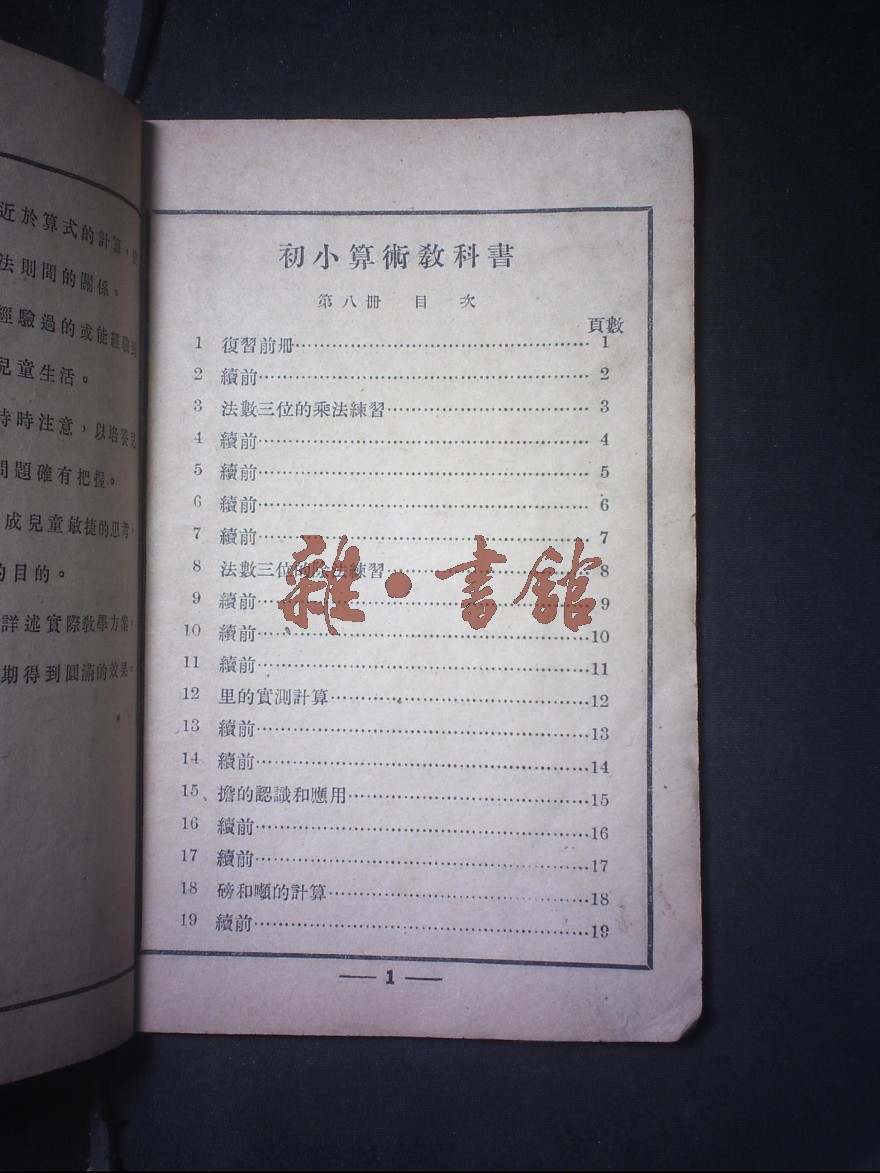 近於算式的計算，使
法則間的關係。
經驗過的或能經驗到
兒童生活。
時時注意，以培養兒
問題確有把握。
成兒童敏捷的思考，
的目的。
詳述實際教學方案，
期得到圓滿的效果。
初小算術教科書
第八冊 目 次
頁數
1 復習前册 1
2 續前 2
3 法數三位的乘法練習 3
4 續前 4
5 續前 5
6 續前 6
7 續前 7
8 法數三位的除法練習 8
9 續前 9
10 續前 10
11 續前 11
12 里的實測計算 12
13 續前 13
14 續前 14
15 擔的認識和應用 15
16 續前 16
17 續前 17
18 磅和噸的計算 18
19 續前 19
— 1 —
雜·書館